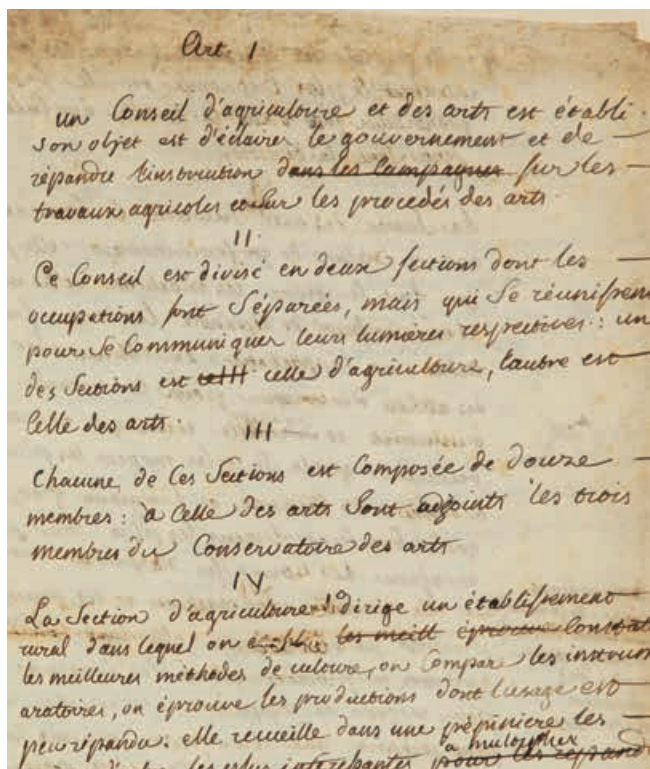 Art. I
un Conseil d'agriculture et des arts est établi.
son objet est d'éclairer le gouvernement et de
répandre l'instruction dans les Campagnes sur les
travaux agricoles et sur les procedés des arts.
II
Ce Conseil est divisé en deux sections dont les
occupations sont Séparées, mais qui Se réunissent
pour Se Communiquer leurs lumières respectives : un
des Sections est celle d'agriculture, l'autre est
Celle des arts.
III
Chacune de Ces Sections est Composée de douze
membres : à Celle des arts Sont adjoints les trois
membres du Conservatoire des arts
IV
La Section d'agriculture dirige un établissement
rural dans lequel on les meill éprouve Constat
les meilleures méthodes de culture, on Compar les instrum
aratoires, on éprouve les productions dont l'usage est
peu répandu. elle recueille dans une pépiniere les
à multiplier
les plus intéressantes pour les répand